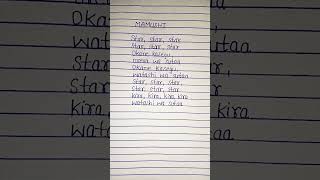 MAMUSHI
Star, star, star
Star, star, star
Okane Kasegu,
Star, star, star
Okane Kasegu,
watashi wa sutaa
Star, star, star,
Star, star, star
Kira, kira, kira, kira
watashi wa sutaa